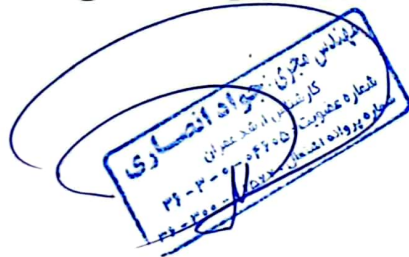 مهندس مجری: جواد انصاری
کارشناس ارشد عمران
شماره عضویت: ۰۵۴۶۰۵-۰-۳-۳۶
شماره پروانه اشتغال: